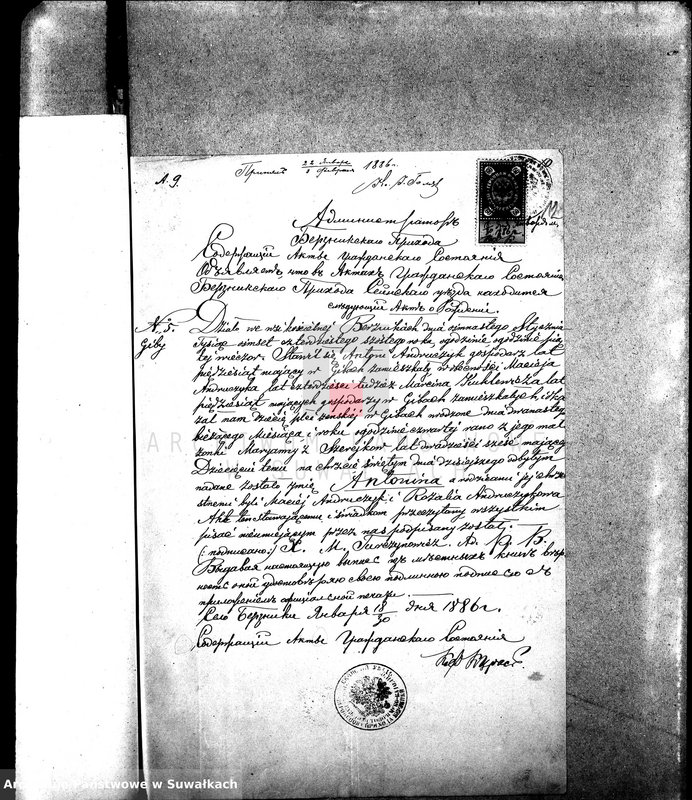 А. 9.
22 Января
3 Февраля 1886 г.
12
Администраторъ
Берзникскаго Прихода
Содержащій Акты Гражданскаго Состоянія
Объявляетъ что въ Актахъ Гражданскаго Состоянія
Берзникскаго Прихода Сейнскаго уѣзда находится
слѣдующій Актъ о Рожденіи.
N. 5.
Giby
Działo we wsi kościelnej Berznikach dnia ośmnastego Stycznia
tysiąc ośmset czterdziestego szóstego roku, ogodzinie
wieczor. Stawił się Antoni Andruczyk gospodarz lat
piędziesiąt mający w Gibach zamieszkały w obecności Macieja
Andruczyka lat czterdzieści tudzież Marcina lat
piędziesiąt mających gospodarzy w Gibach zamieszkałych, i oka
zał nam dziecię płci żenskiej w Gibach urodzone dnia dwunastego
bieżącego Miesiąca i roku ogodzinie czwartej rano z jego mał
żonki Maryanny z lat dwadzieścia sześć mającej
Dziecięciu temu na chrzcie świętym dnia dzisiejszego odbytym
nadane zostało imię Antonina a rodzicami jej chrze
stnemi byli Maciej Andruczyk i Rozalia Andruczykowa
Akt ten stawającemu i świadkom przeczytany wszystkim
pisać nieumiejącym przez nas podpisany został.
(:подписано:) X. M. Turczynowicz. Ad. P. B.
Выдавая настоящую выпись изъ мѣстныхъ книгъ вѣр
ность оной удостовѣряю своею подлинною подписью съ
приложеніемъ офиціальной печати.
Село Берзники Января 18/30 дня 1886 г.
Содержащій Акты Гражданскаго Состоянія
ARCHIWUM
W SUWAŁKACH
Archiwum Państwowe w Suwałkach